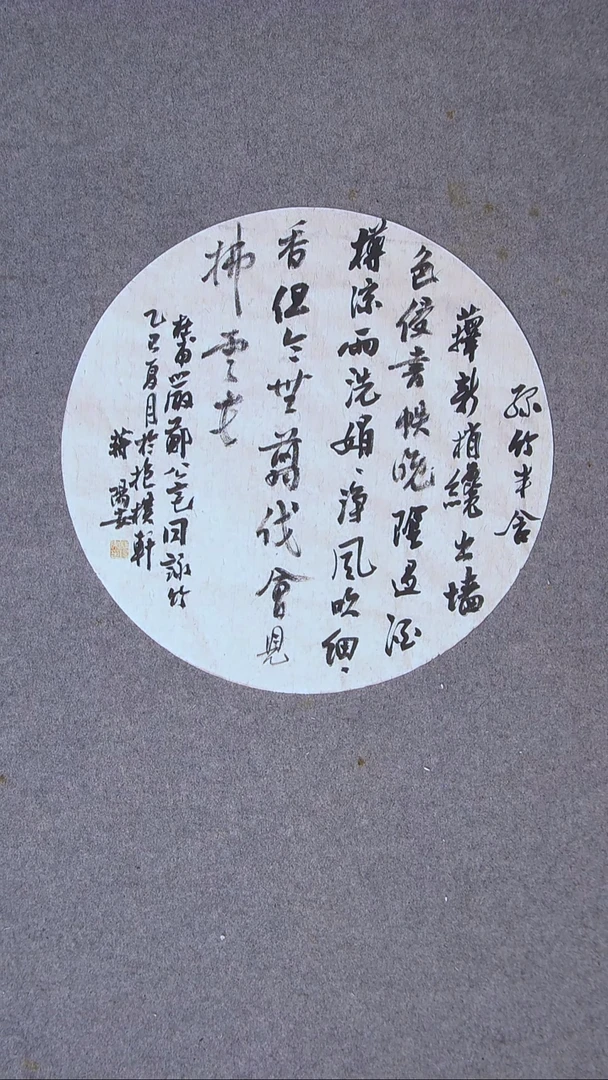 緑竹半含
籜新梢纔出墻
色侵書帙晚陰過酒
樽涼雨洗娟〻淨風吹細〻
香但令無翦伐會見
拂雲長
杜甫嚴鄭公宅同詠竹
乙巳夏月於抱樸軒
蔣